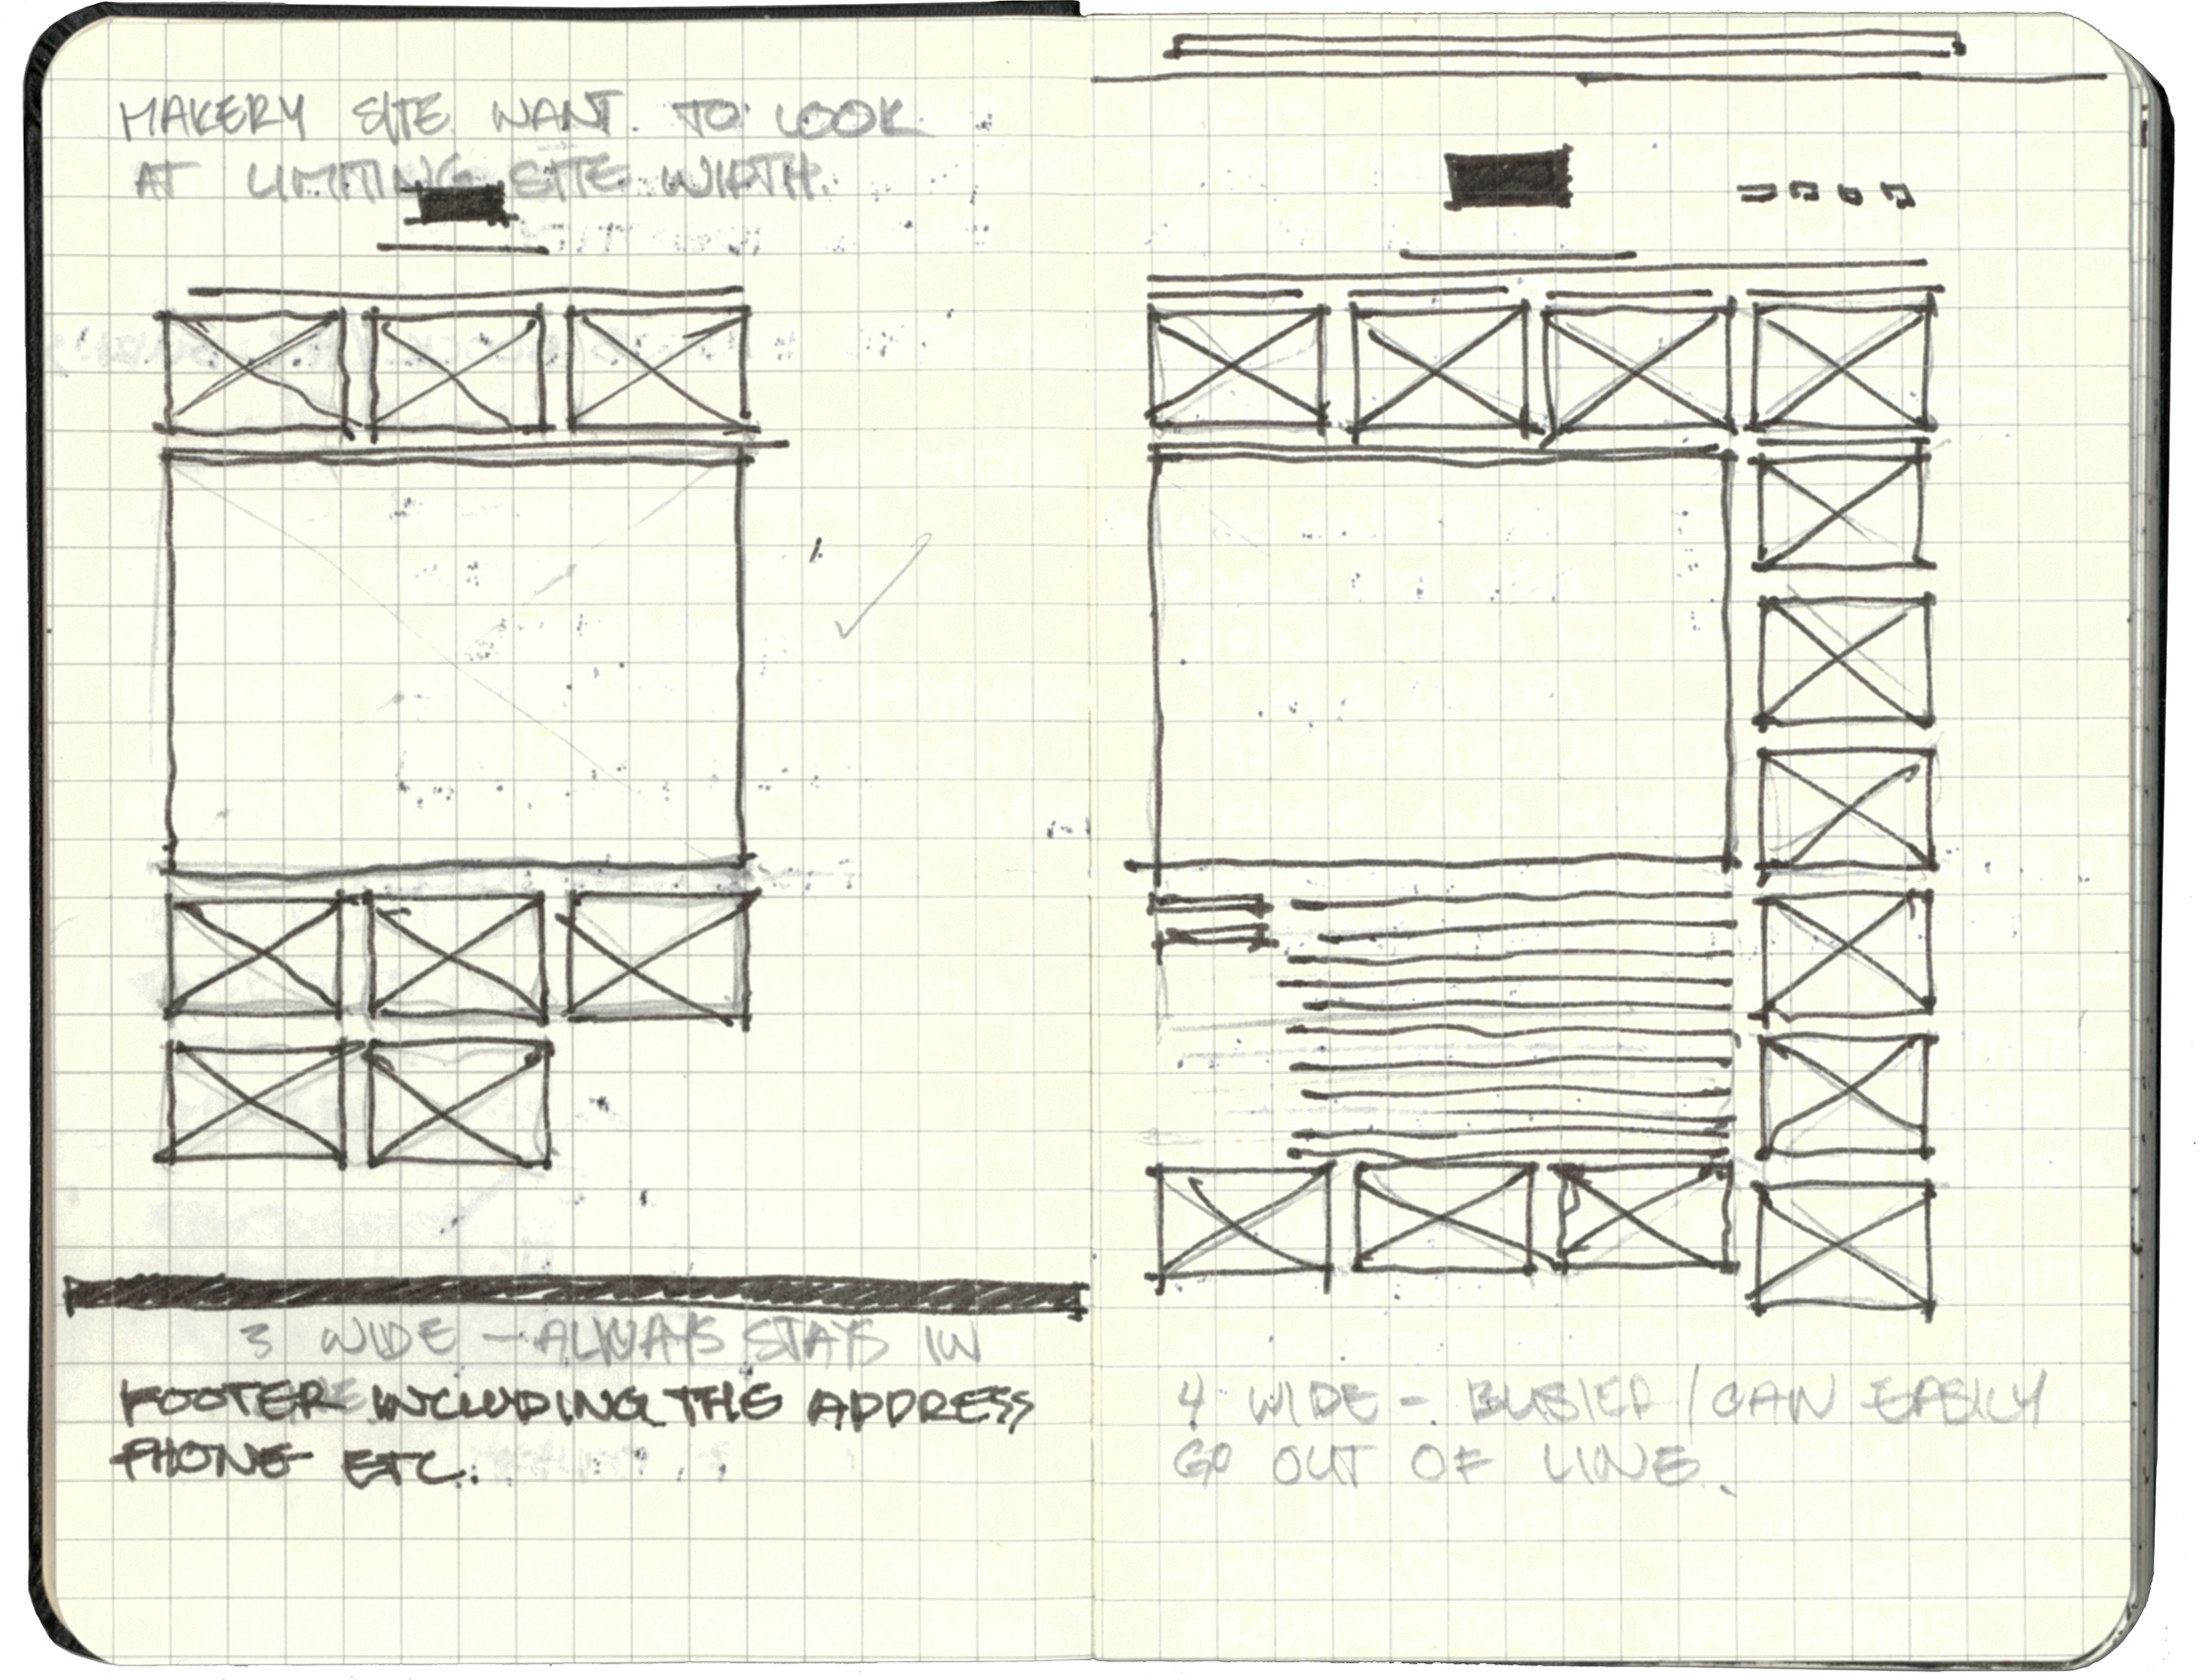 MAKERY SITE WANT TO LOOK
AT LIMITING SITE WIDTH.
3 WIDE - ALWAYS STAYS IN
FOOTER INCLUDING THE ADDRESS
PHONE ETC.
4 WIDE - BUSIER / CAN EASILY
GO OUT OF LINE.